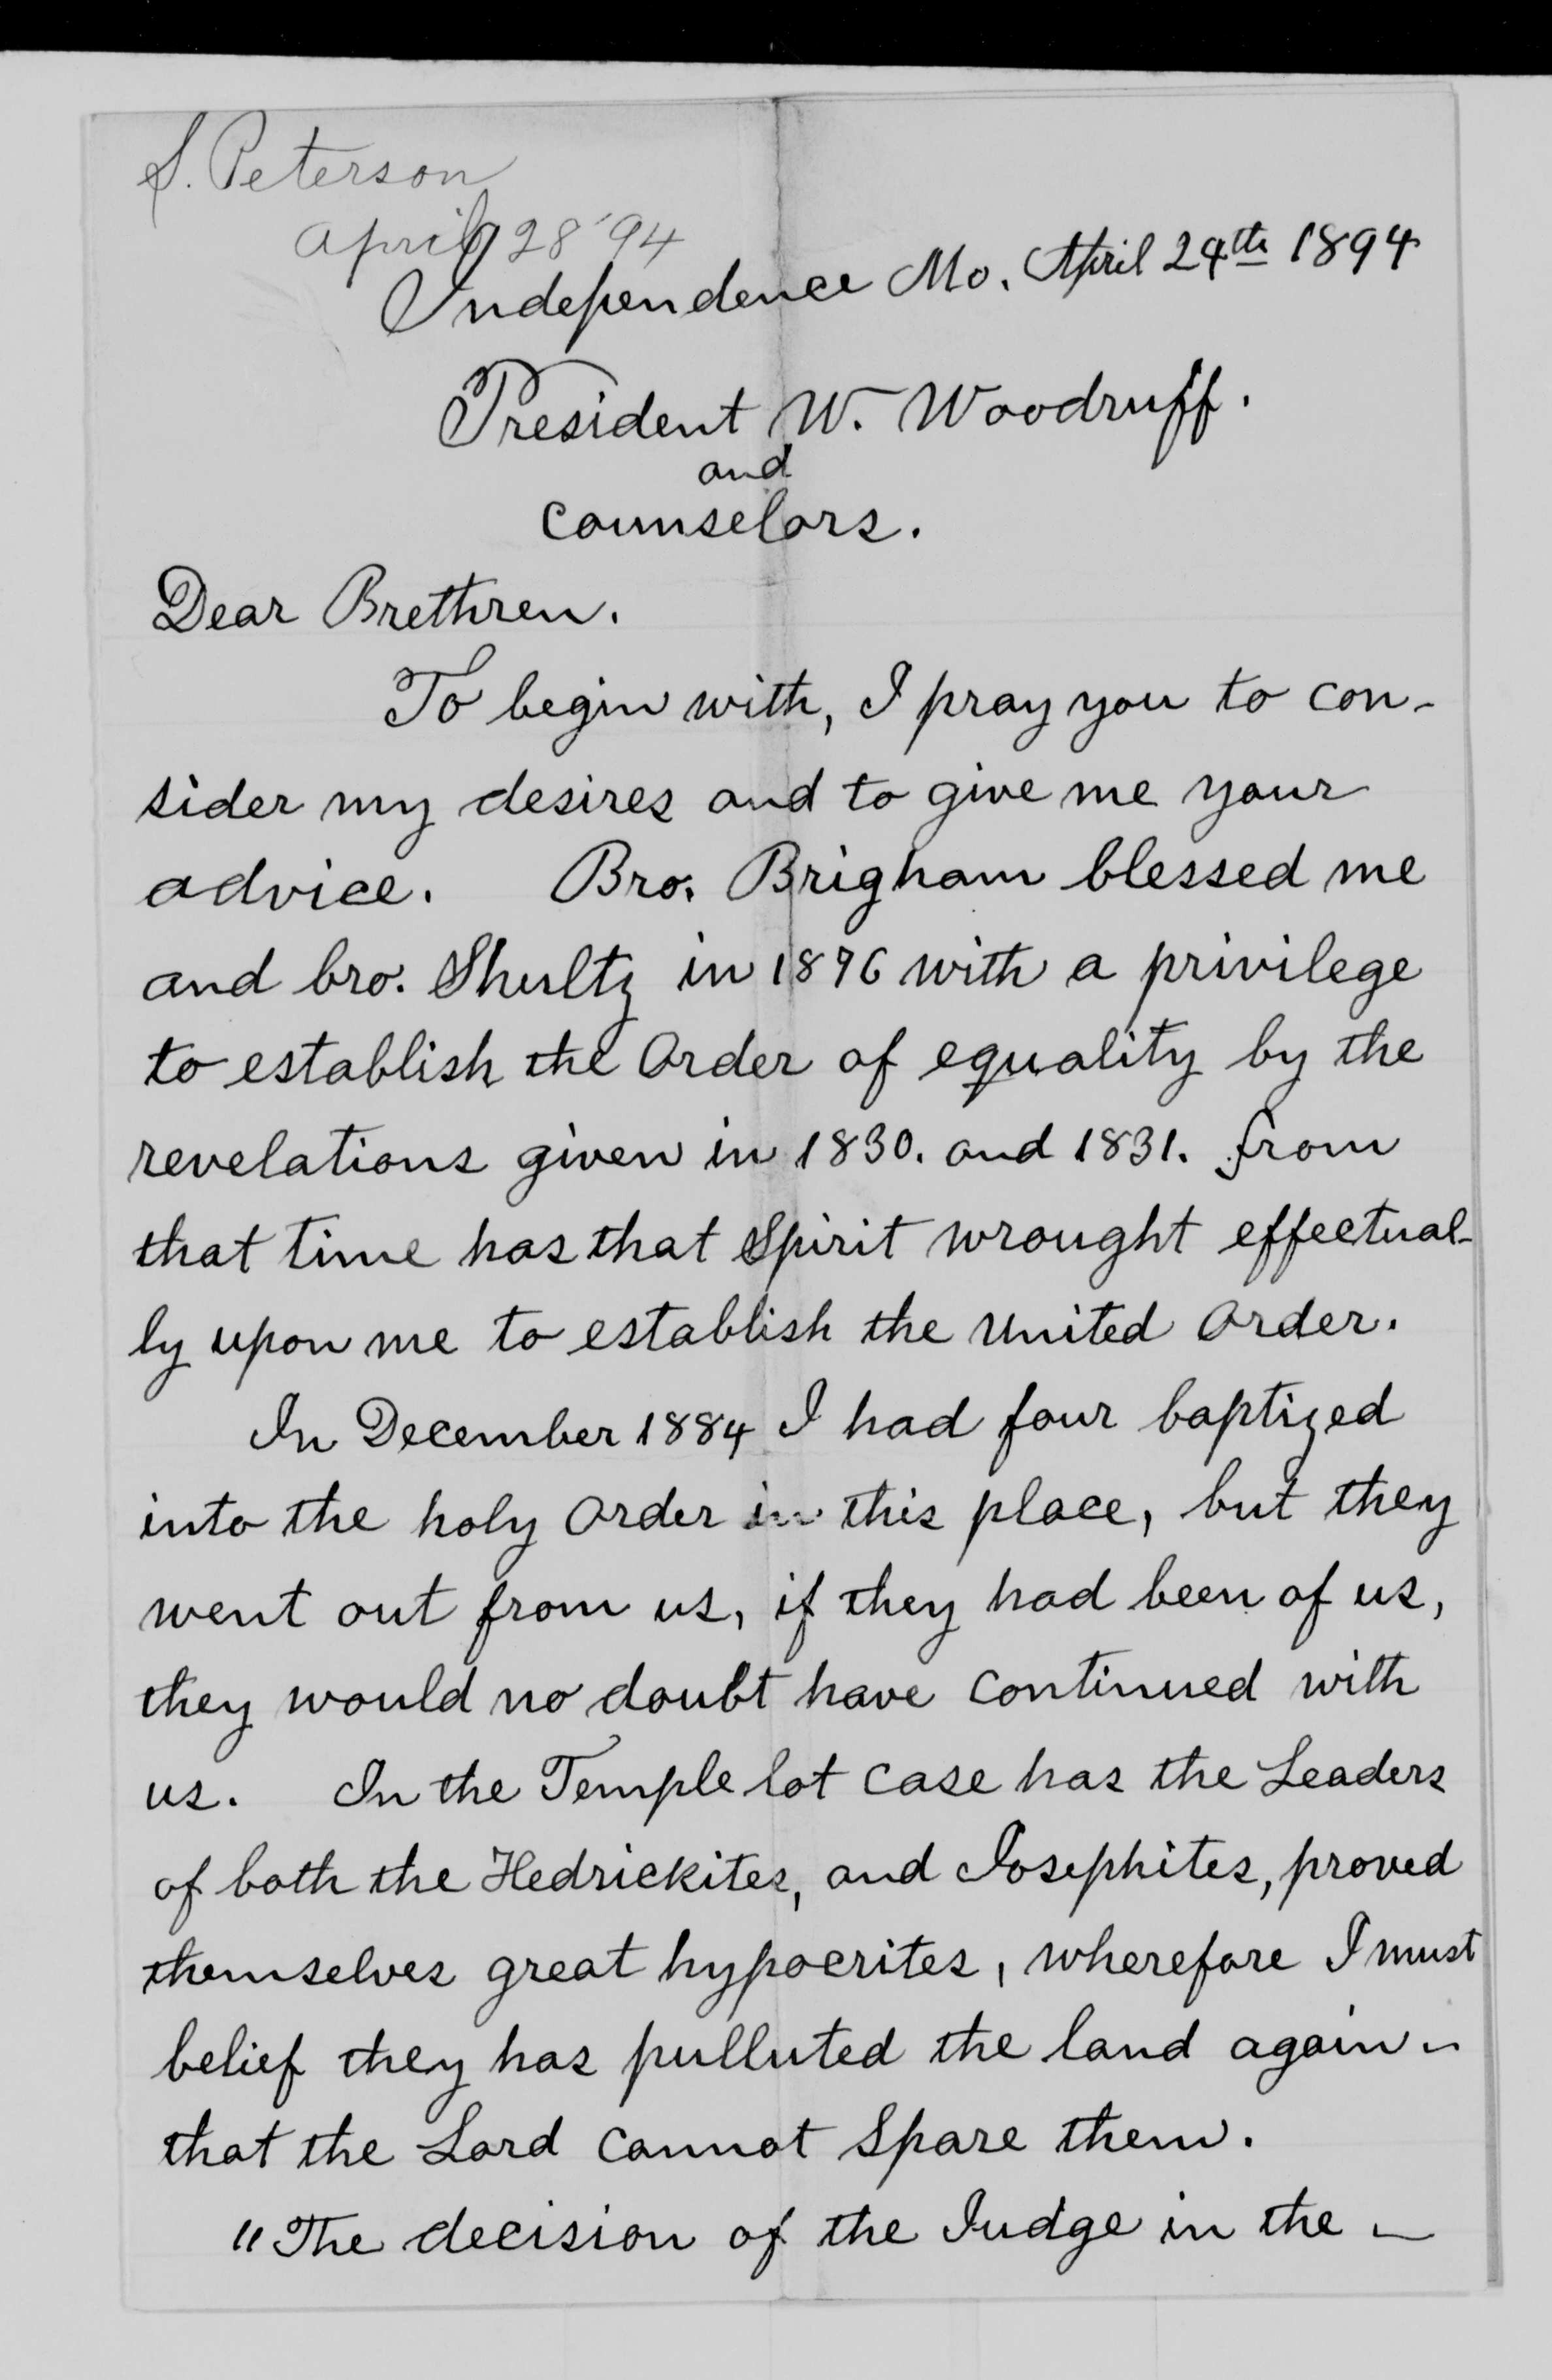 S. Peterson
April 28 '94
Independence Mo. April 24th 1894
President W. Woodruff.
and
Counselors.
Dear Brethren.
To begin with, I pray you to con-
sider my desires and to give me your
advice. Bro. Brigham blessed me
and bro. Shultz in 1876 with a privilege
to establish the Order of equality by the
revelations given in 1830. and 1831. from
that time has that Spirit wrought effectual-
ly upon me to establish the United Order.
In December 1884 I had four baptized
into the holy Order in this place, but they
went out from us, if they had been of us,
they would no doubt have continued with
us. In the Temple lot case has the Leaders
of both the Hedrickites, and Josephites, proved
themselves great hypocrites, wherefore I must
belief they has pulluted the land again -
that the Lord cannot Spare them.
"The decision of the Judge in the -